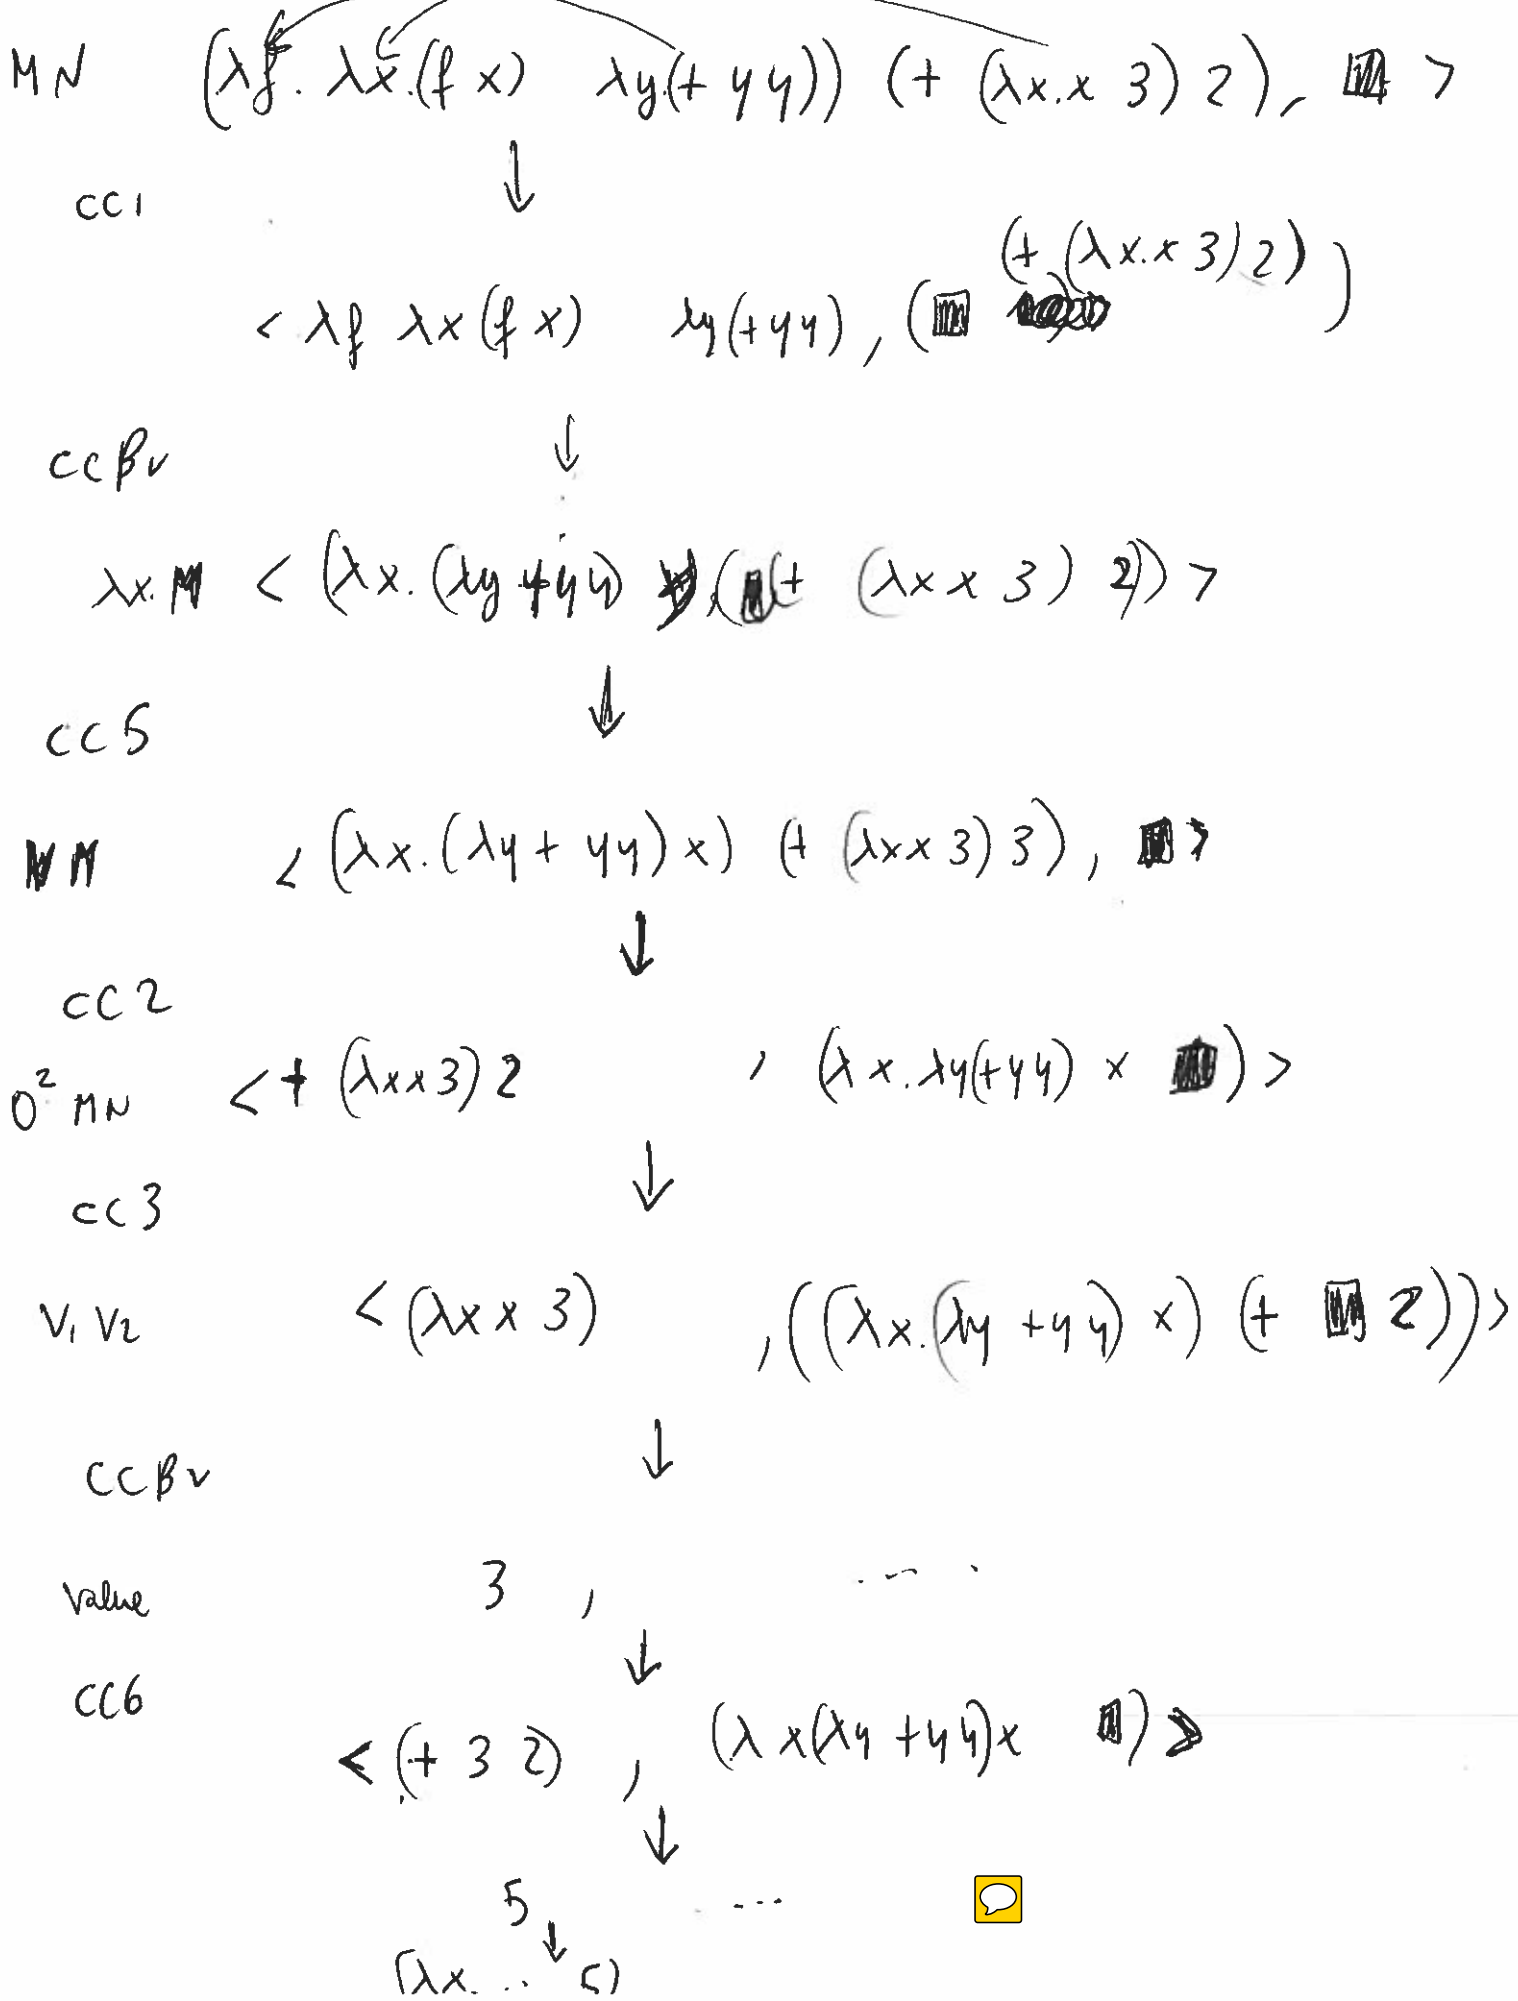 MN (λf. λx.(f x) λy(+ y y)) (+ (λx.x 3) 2), >
CC1
(+ (λx.x 3) 2)
< λf λx(f x) λy(+yy), ( )
CCβv
λx.M < (λx.(λy + y y) , ( (+ (λx x 3) 2)) >
CC5
M < (λx.(λy + yy) x) (+ (λx x 3) 3), >
CC2
O² MN < + (λx x 3) 2 , (λx.λy(+yy) x ) >
CC3
V₁ V₂ < (λx x 3) , ((λx.(λy + y y) x) (+ 2)) >
CCβv
Value 3 , ....
CC6
< (+ 3 2) , (λx(λy + y y)x ) >
5 ...
(λx... 5)